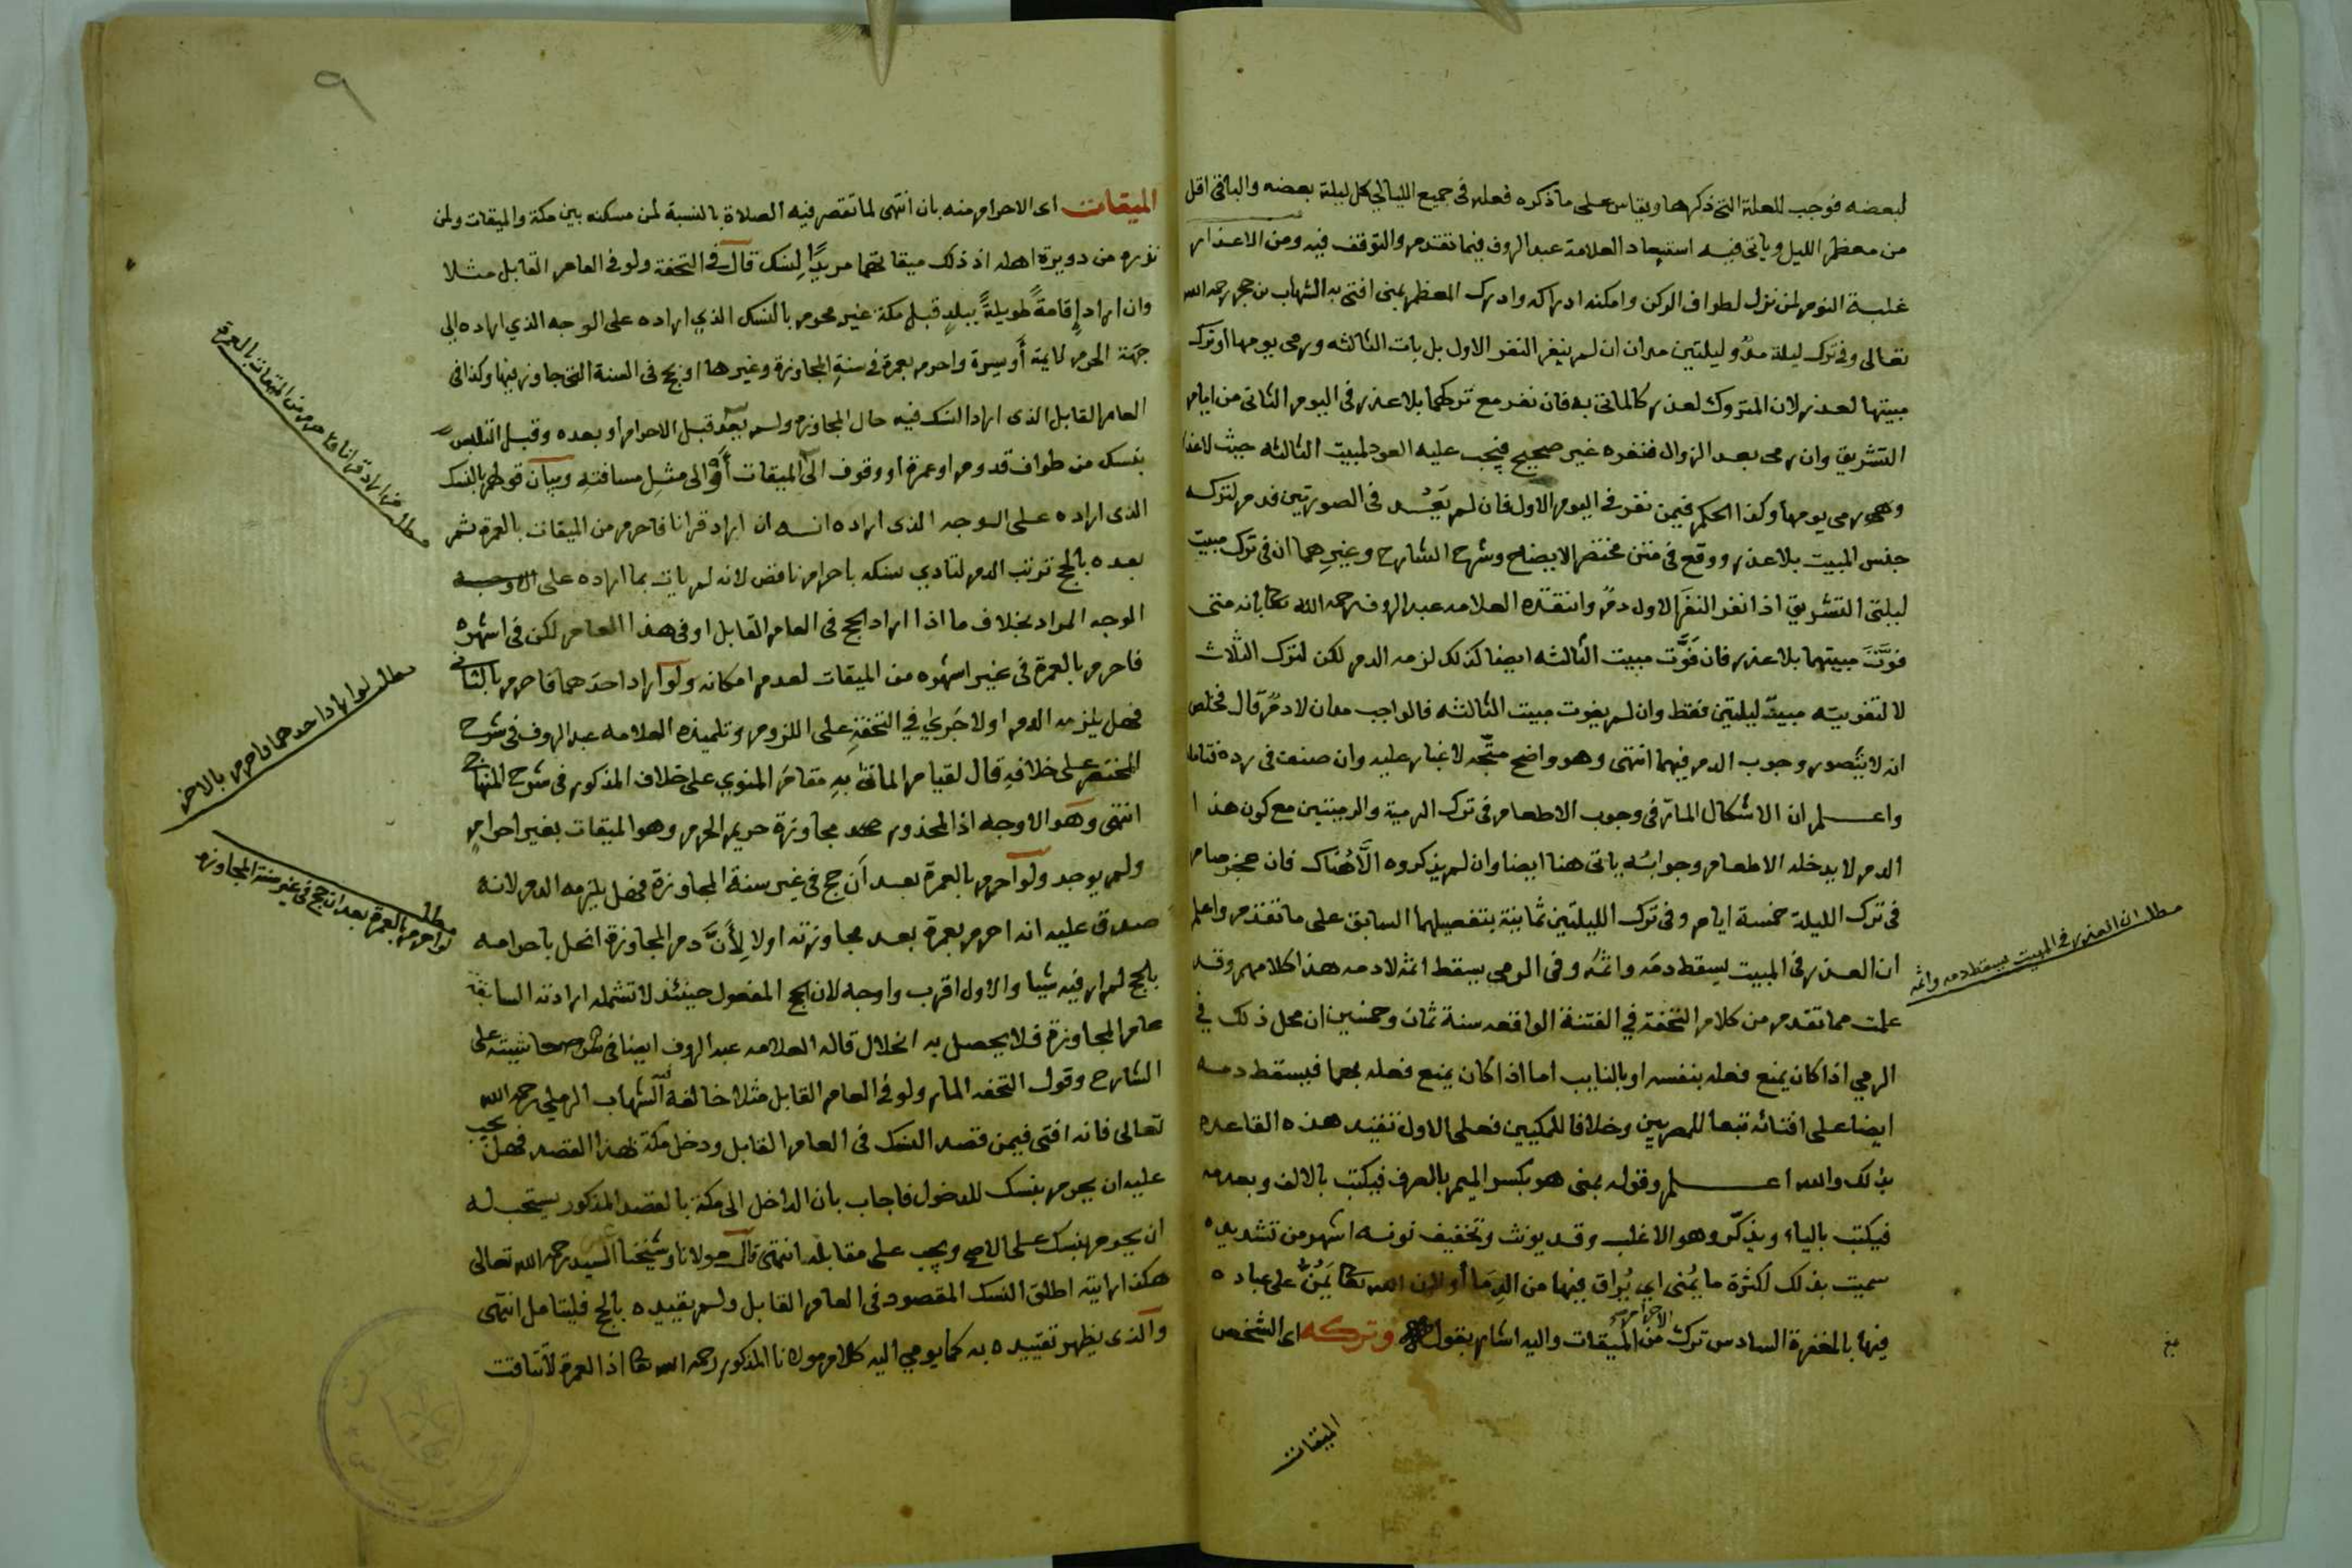 لبعضه فوجب للعلة التى ذكرها ويقاس على ما ذكره فعله فى جميع الليالي كل ليلة بعضه والباقى اقل
من معظم الليل وياتى فيه استبعاد العلامة عبد الروف فيما تقدم والتوقف فيه ومن الاعذار
غلبة النوم لمن نزل لطواف الركن وامكنه ادراكه وادرك المعظم بمنى افتى به الشهاب بن حجر رحمه الله
تعالى وفى ترك ليلة مدٌ وليلتين مدان ان لم ينفر النفر الاول بل بات الثالثه ورمى يومها او ترك
مبيتها لعذر لان المتروك لعذر كالماتى به فان نفر مع تركهما بلا عذر فى اليوم الثانى من ايام
التشريق وان رمى بعد الزوال فنفره غير صحيح فيجب عليه العود لمبيت الثالثه حيث لا عذر
رمى يومها وكذا الحكم فيمن نفر فى اليوم الاول فان لم يَعُد فى الصورتين فدم لتركه
جنس المبيت بلا عذر ووقع فى متن مختصر الايضاح وشرح الشارح وغيرهما ان فى ترك مبيت
ليلتى التشريق اذا نفر النفر الاول دمٌ وانتقده العلامه عبد الروف رحمه الله تعا بانه متى
فوَّت مبيتهما بلا عذر فان فوَّت مبيت الثالثه ايضا كذلك لزمه الدم لكن لترك الثلاث
لا لتفويته مبيت ليلتين فقط وان لم يفوت مبيت الثالثه فالواجب مدان لا دمٌ قال فخلص
انه لا يتصور وجوب الدم فيهما انتهى وهو واضح متّجه لا غبار عليه وان صنعت فى رده فتامله
واعلم ان الاشكال المارّ فى وجوب الاطعام فى ترك الرمية والرميتين مع كون هذا
الدم لا يدخله الاطعام وجوابُه ياتى هنا ايضا وان لم يذكروه الَّا هُناك فان عجز صام
فى ترك الليلة خمسة ايام وفى ترك الليلتين ثمانية بتفصيلهما السابق على ما تقدم واعلم
ان العذر فى المبيت يسقط دمَه واثمَه وفى الرمى يسقط اثمه لا دمه هذا كلامهم وقد
علمت مما تقدم من كلام التحفة في الفتنة الواقعه سنة ثمان وخمسين ان محل ذلك في
الرمي اذا كان يمنع فعله بنفسه او بالنايب اما اذا كان يمنع فعله بهما فيسقط دمه
ايضا على افتائه تبعا للمصريين وخلافا للمكيين فعلى الاول تقيد هذه القاعده
بذلك والله اعلم وقوله بمنى هو بكسر الميم بالصرف فيكتب بالالف وبعدمه
فيكتب بالياء ويذكّر وهو الاغلب وقد يونث وتخفيف نونه اشهر من تشديده
سميت بذلك لكثرة ما يُمنى اي يُراق فيها من الدِمَا أو لان الله تعا يَمُنُّ على عباده
فيها بالمغفرة السادس ترك الاحرام من الميقات واليه اشار بقوله وتركه اى الشخص
الميقات
مطلب ان العذر فى المبيت يسقط دمه واثمه
٩
الميقات اى الاحرام منه بان انتهى لما تقصر فيه الصلاة بالنسبة لمن مسكنه بين مكة والميقات ولمن
نزره من دويرة اهله اذ ذلك ميقاتهما مريدًا لِنسك قال فى التحفة ولو فى العام القابل مثلا
وان اراد إقامةً طويلةً ببلدٍ قبل مكة غير محرم بالنسك الذي اراده على الوجه الذي اراده الى
جهة الحرم لا يمنة أو يسرة واحرم بعمرة فى سنةِ المجاوزة وغيرها او بحج فى السنة التى جاوز فيها وكذا فى
العام القابل الذى اراد النسك فيه حال المجاوزه ولم يعد قبل الاحرام أو بعده وقبل التلبس
بنسك من طواف قدوم او عمرة او وقوف الى الميقات أو الى مثل مسافته وبيان قولهم بالنسك
الذى اراده على الوجه الذى اراده انه ان اراد قرانا فاحرم من الميقات بالعمرة ثم
بعده بالحج ترتب الدم لتادي نسكه باحرام ناقص لانه لم يات بما اراده على الاوجه
الوجه المراد بخلاف ما اذا اراد الحج فى العام القابل او فى هذا العام لكن فى اشهره
فاحرم بالعمرة فى غير اشهره من الميقات لعدم امكانه ولو اراد احدَهما فاحرم بالثانى
فهل يلزمه الدم او لا جَرى في التحفةِ على اللزوم وتلميذه العلامه عبد الروف فى شرح
المختصر على خلافهِ قال لقيام الماتى بهِ مقامَ المنوي على خلاف المذكور فى شرح المنهاج
انتهى وهو الاوجه اذ المحذور مجاوزة حريم الحرم وهو الميقات بغير احرامٍ
ولم يوجد ولو احرم بالعمرة بعد أن حج فى غير سنة المجاوزة فهل يلزمه الدم لانه
صدق عليه انه احرم بعمرة بعد مجاوزته او لا لِأنَّ دم المجاوزة انحل باحرامه
بالحج لم ار فيه شيا والاول اقرب واوجه لان الحج المفعول حينئذ لا تشمله ارادته السابقة
عام المجاوزة فلا يحصل به انحلال قاله العلامه عبد الروف ايضا فى حاشيته على
الشارح وقول التحفه المار ولو فى العام القابل مثلا خالفه الشهاب الرملي رحمه الله
تعالى فانه افتى فيمن قصد النسك فى العام القابل ودخل مكة لهذا القصد فهل يجب
عليه ان يحرم بنسك للدخول فاجاب بان الداخل الى مكة بالقصد المذكور يستحب له
ان يحرم بنسك على الاصح ويجب على مقابله انتهى قال مولانا وشيخنا السيد رحمه الله تعالى
هكذا رايته اطلق النسك المقصود فى العام القابل ولم يقيده بالحج فليتامل انتهى
والذى يظهر تقييده به كما يومي اليه كلام مولانا المذكور رحمه الله تعا اذ العمرة لا تتاقت
مطلب اراد قرانا فاحرم من الميقات بالعمرة
مطلب لو اراد احدهما فأحرم بالاخر
مطلب لو احرم بالعمرة بعد ان حج فى غير سنة المجاوزه